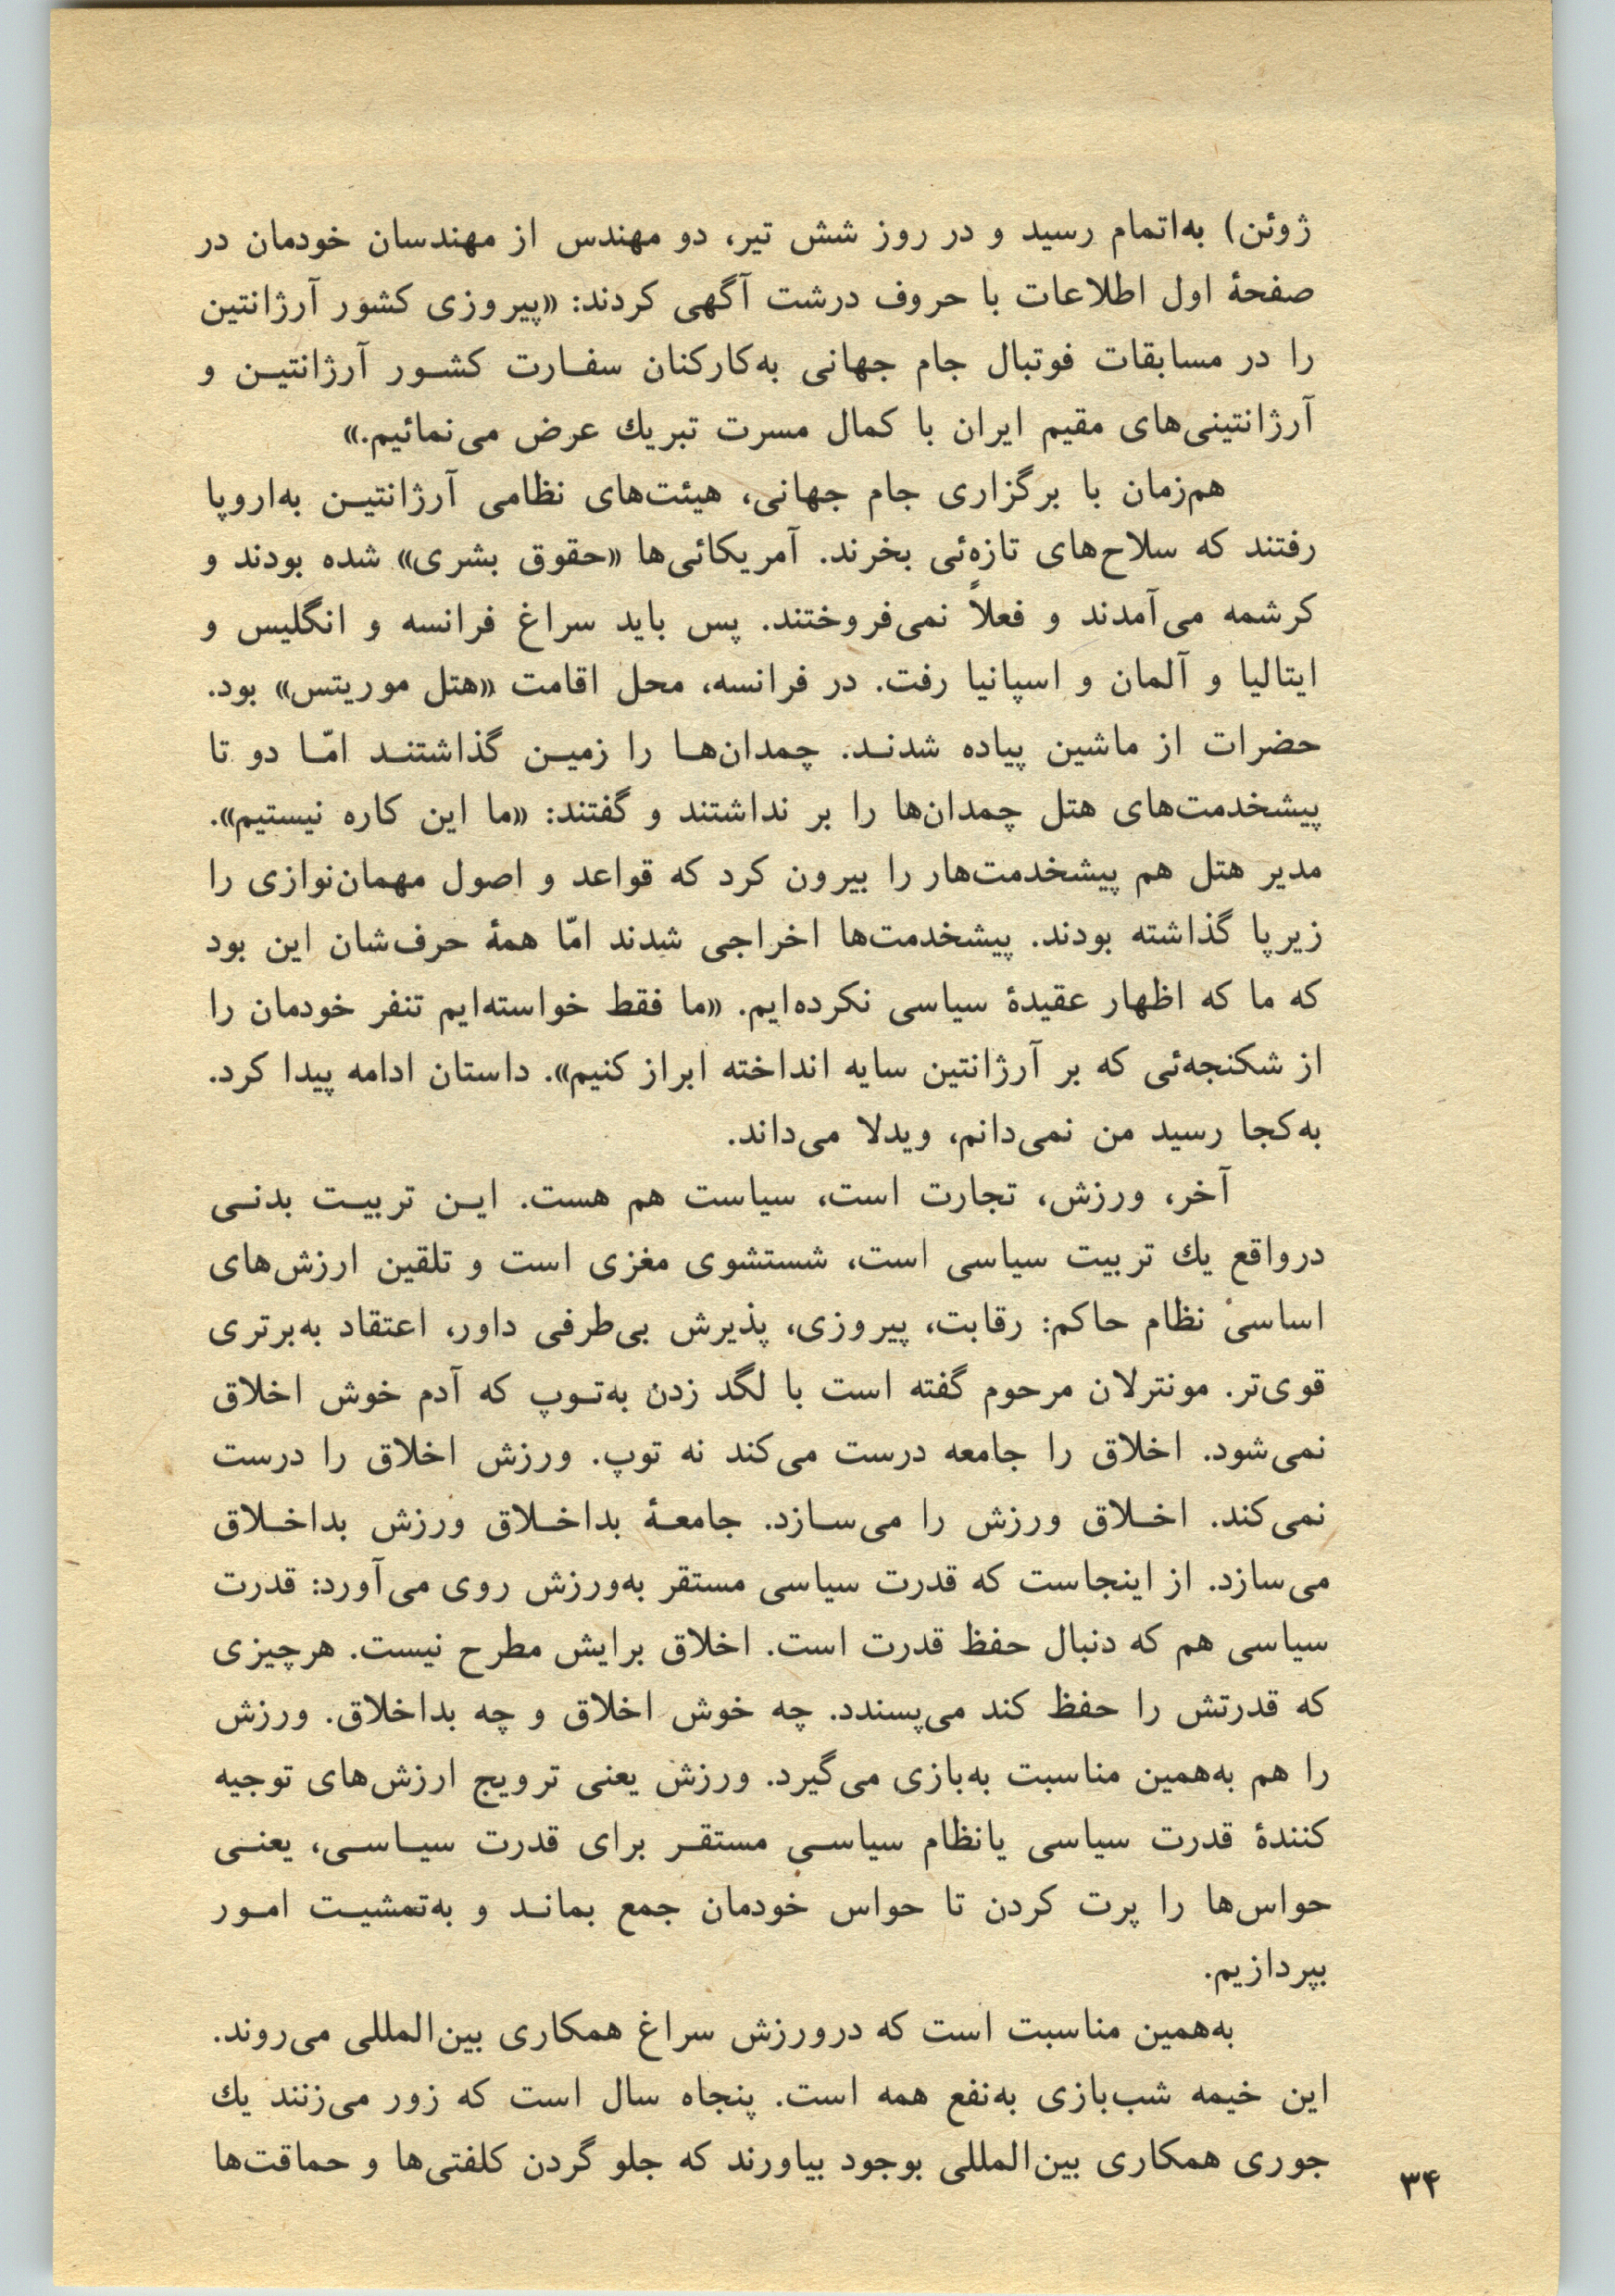 ژوئن) به‌اتمام رسید و در روز شش تیر، دو مهندس از مهندسان خودمان در
صفحهٔ اول اطلاعات با حروف درشت آگهی کردند: «پیروزی کشور آرژانتین
را در مسابقات فوتبال جام جهانی به‌کارکنان سفـارت کشـور آرژانتیـن و
آرژانتینی‌های مقیم ایران با کمال مسرت تبریك عرض می‌نمائیم.»
هم‌زمان با برگزاری جام جهانی، هیئت‌های نظامی آرژانتیـن به‌اروپا
رفتند که سلاح‌های تازه‌ئی بخرند. آمریکائی‌ها «حقوق بشری» شده بودند و
کرشمه می‌آمدند و فعلاً نمی‌فروختند. پس باید سراغ فرانسه و انگلیس و
ایتالیا و آلمان و اسپانیا رفت. در فرانسه، محل اقامت «هتل موریتس» بود.
حضرات از ماشین پیاده شدنـد. چمدان‌هـا را زمیـن گذاشتنـد امّـا دو تا
پیشخدمت‌های هتل چمدان‌ها را بر نداشتند و گفتند: «ما این کاره نیستیم».
مدیر هتل هم پیشخدمت‌هار را بیرون کرد که قواعد و اصول مهمان‌نوازی را
زیرپا گذاشته بودند. پیشخدمت‌ها اخراجی شدند امّا همهٔ حرف‌شان این بود
که ما که اظهار عقیدهٔ سیاسی نکرده‌ایم. «ما فقط خواسته‌ایم تنفر خودمان را
از شکنجه‌ئی که بر آرژانتین سایه انداخته ابراز کنیم». داستان ادامه پیدا کرد.
به‌کجا رسید من نمی‌دانم، ویدلا می‌داند.
آخر، ورزش، تجارت است، سیاست هم هست. ایـن تربیـت بدنـی
درواقع یك تربیت سیاسی است، شستشوی مغزی است و تلقین ارزش‌های
اساسیْ نظام حاکم: رقابت، پیروزی، پذیرش بی‌طرفی داور، اعتقاد به‌برتری
قوی‌تر. مونترلان مرحوم گفته است با لگد زدن به‌تـوپ که آدم خوش اخلاق
نمی‌شود. اخلاق را جامعه درست می‌کند نه توپ. ورزش اخلاق را درست
نمی‌کند. اخـلاق ورزش را می‌سـازد. جامعـهٔ بداخـلاق ورزش بداخـلاق
می‌سازد. از اینجاست که قدرت سیاسی مستقر به‌ورزش روی می‌آورد: قدرت
سیاسی هم که دنبال حفظ قدرت است. اخلاق برایش مطرح نیست. هرچیزی
که قدرتش را حفظ کند می‌پسندد. چه خوش اخلاق و چه بداخلاق. ورزش
را هم به‌همین مناسبت به‌بازی می‌گیرد. ورزش یعنی ترویج ارزش‌های توجیه
کنندهٔ قدرت سیاسی یانظام سیاسـی مستقـر برای قدرت سیـاسـی، یعنـی
حواس‌ها را پرت کردن تا حواس خودمان جمع بمانـد و به‌تمشیـت امـور
بپردازیم.
به‌همین مناسبت است که درورزش سراغ همکاری بین‌المللی می‌روند.
این خیمه شب‌بازی به‌نفع همه است. پنجاه سال است که زور می‌زنند یك
جوری همکاری بین‌المللی بوجود بیاورند که جلو گردن کلفتی‌ها و حماقت‌ها
۳۴